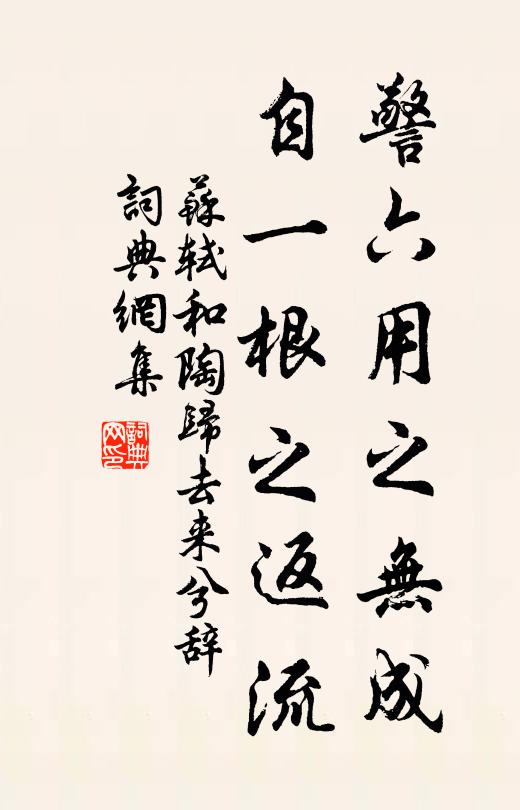 警六用之無成
自一根之返流
蘇軾和陶歸去来兮辞
詞典網集
詞典
网印